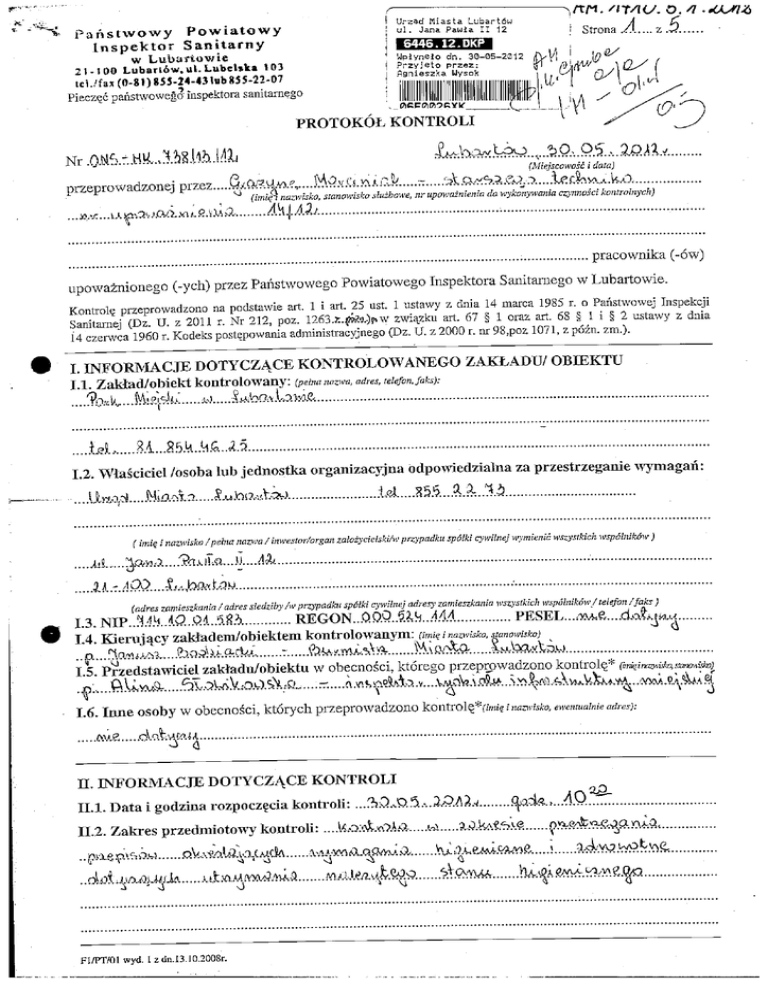 Państwowy Powiatowy
Inspektor Sanitarny
w Lubartowie
21-100 Lubartów, ul. Lubelska 103
tel./fax (0-81) 855-24-43 lub 855-22-07
Pieczęć państwowego inspektora sanitarnego
Urząd Miasta Lubartów
ul. Jana Pawła II 12
6446.12.DKP
Wpłynęło dn. 30-05-2012
Przyjęto przez:
Agnieszka Wysok
Strona 1 z 5
PROTOKÓŁ KONTROLI
Nr ONS-HK 738/13/12 Lubartów 30.05.2012r
(Miejscowość i data)
przeprowadzonej przez Grażyna Marciniak - starszego technika
(imię i nazwisko, stanowisko służbowe, nr upoważnienia do wykonywania czynności kontrolnych)
nr upoważnienia 14/12
pracownika (-ów)
upoważnionego (-ych) przez Państwowego Powiatowego Inspektora Sanitarnego w Lubartowie.
Kontrolę przeprowadzono na podstawie art. 1 i art. 25 ust. 1 ustawy z dnia 14 marca 1985 r. o Państwowej Inspekcji
Sanitarnej (Dz. U. z 2011 r. Nr 212, poz. 1263 z późn.) w związku art. 67 § 1 oraz art. 68 § 1 i § 2 ustawy z dnia
14 czerwca 1960 r. Kodeks postępowania administracyjnego (Dz. U. z 2000 r. nr 98,poz 1071, z późn. zm.).
I. INFORMACJE DOTYCZĄCE KONTROLOWANEGO ZAKŁADU/ OBIEKTU
I.1. Zakład/obiekt kontrolowany: (pełna nazwa, adres, telefon, faks):
Park Miejski w Lubartowie
tel. 81 854 46 25
I.2. Właściciel /osoba lub jednostka organizacyjna odpowiedzialna za przestrzeganie wymagań:
Urząd Miasta Lubartów tel 855 22 73
( imię i nazwisko / pełna nazwa / inwestor/organ założycielski/w przypadku spółki cywilnej wymienić wszystkich wspólników )
ul Jana Pawła II 12
21-100 Lubartów
(adres zamieszkania / adres siedziby /w przypadku spółki cywilnej adresy zamieszkania wszystkich wspólników / telefon / faks )
I.3. NIP 714 10 01 583 REGON 000 524 111 PESEL nie dotyczy
I.4. Kierujący zakładem/obiektem kontrolowanym: (imię i nazwisko, stanowisko)
p. Janusz Bodziacki - Burmistrz Miasta Lubartów
I.5. Przedstawiciel zakładu/obiektu w obecności, którego przeprowadzono kontrolę* (imię i nazwisko, stanowisko)
p. Alina - inspektor wydziału infrastruktury miejskiej
I.6. Inne osoby w obecności, których przeprowadzono kontrolę*(imię i nazwisko, ewentualnie adres):
nie dotyczy
II. INFORMACJE DOTYCZĄCE KONTROLI
II.1. Data i godzina rozpoczęcia kontroli: 30.05.2012r. godz. 10 20
II.2. Zakres przedmiotowy kontroli: Kontrola w zakresie przestrzegania
przepisów określających wymagania higieniczne i zdrowotne
dotyczących utrzymania należytego stanu higienicznego
F1/PT/01 wyd. 1 z dn.13.10.2008r.